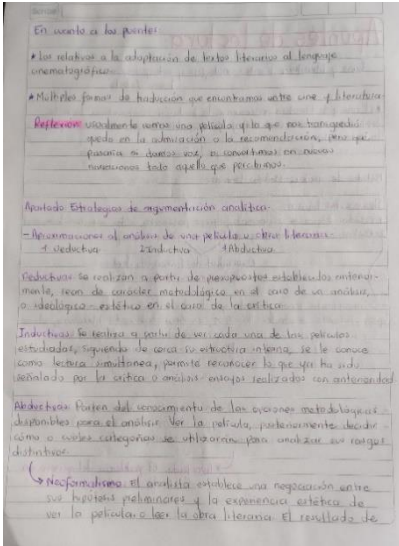 En cuanto a los puentes
* Los relativos a la adaptación de textos literarios al lenguaje
cinematográfico.
* Múltiples formas de traducción que encontramos entre cine y literatura
Reflexion: usualmente vemos una película y lo que nos
queda en la admiración o la recomendación, pero qué
pasaria si damos voz, o convertimos en nuevas
narraciones todo aquello que percibimos.
Apartado Estrategias de argumentación analítica.
- Aproximaciones al análisis de una película u obra literaria
Deductiva Inductiva Abductiva
Deductivas: Se realizan a partir de presupuestos establecidos anterior-
mente, sean de carácter metodológico en el caso de un análisis,
o ideológico - estético en el caso de la crítica
Inductivas: Se realiza a partir de ver cada una de las películas
estudiadas, siguiendo de cerca su estructura interna, se le conoce
como lectura simultanea, permite reconocer lo que ya ha sido
señalado por la crítica o análisis realizados con anterioridad
Abductivas: Parten del conocimiento de las opciones metodológicas
disponibles para el análisis. Ver la película, posteriormente decidir
cómo o cuáles categorías se utilizarán para analizar sus rasgos
distintivos.
Neoformalismo: El analista establece una negociación entre
sus hipótesis preliminares y la experiencia estética de
ver la película o leer la obra literaria. El resultado de